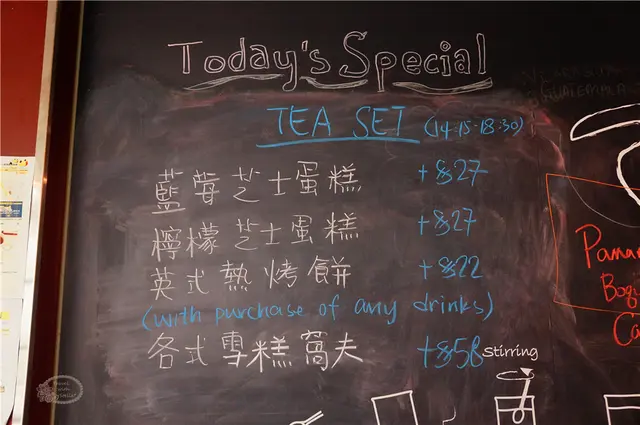 Today's Special
TEA SET (14:15-18:30)
藍莓芝士蛋糕 +$27
檸檬芝士蛋糕 +$27
英式熱烤餅 +$22
(with purchase of any drinks)
各式雪糕窩夫 +$58
Stirring